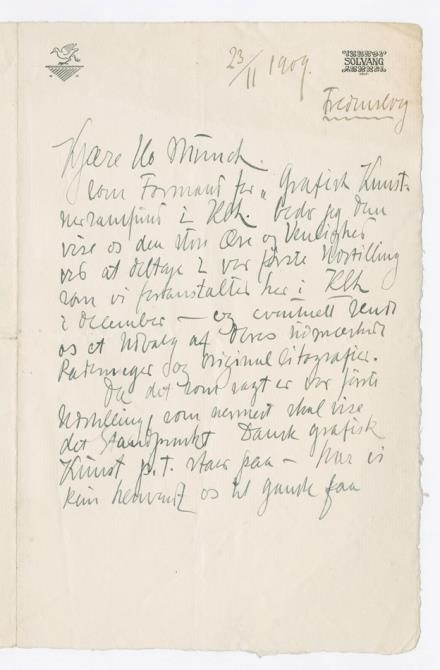 SOLVANG
23/11 1909.
Fredensborg
Kjære Hr Munch.
Som Formand for „Grafisk Kunst-
nersamfund i Kbh. beder jeg Dem
vise os den store Ære og Venlighed
ved at deltage i vor første Udstilling
som vi foranstalter her i Kbh
i December – og eventuelt sende
os et Udvalg af Deres udmærkede
Raderinger og original litografier.
Da det som sagt er vor første
Udstilling, som nærmest skal vise
det Standpunkt Dansk grafisk
Kunst p.t. staar paa – har vi
kun henvendt os til ganske faa